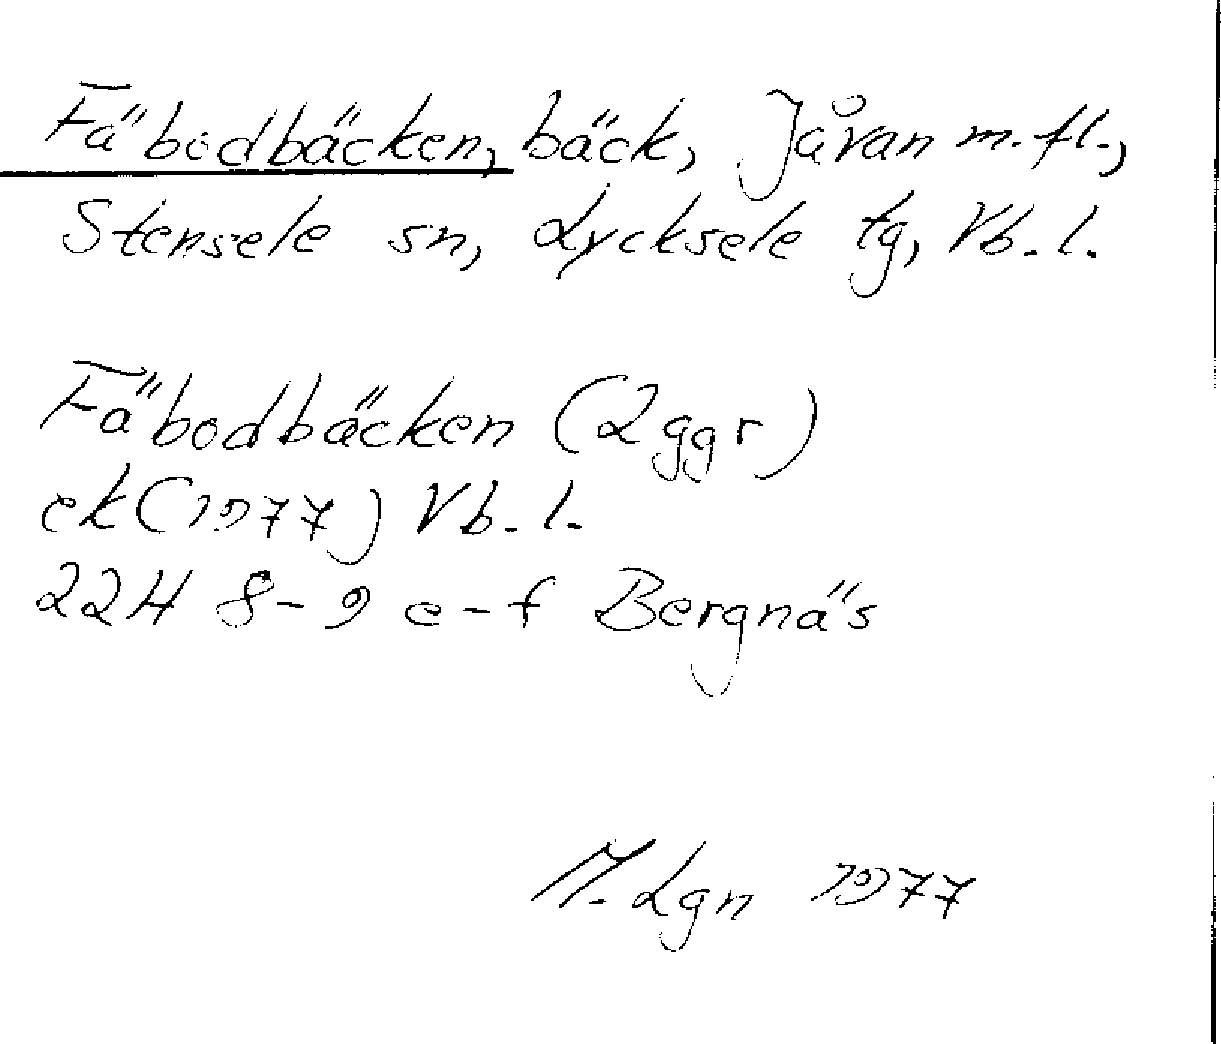 Fäbodbäcken, bäck, Jåvan m.fl.,
Stensele sn, Lycksele tg, Vb.l.
Fäbodbäcken (2ggr)
ek(1977) Vb.l.
22H 8-9 e-f Bergnäs
M. Lgn 1977